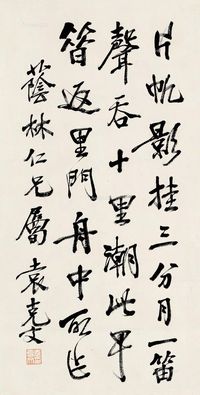 片帆影挂三分月一笛
聲吞十里潮此甲
返里門舟中所作
蔭林仁兄屬 袁克文